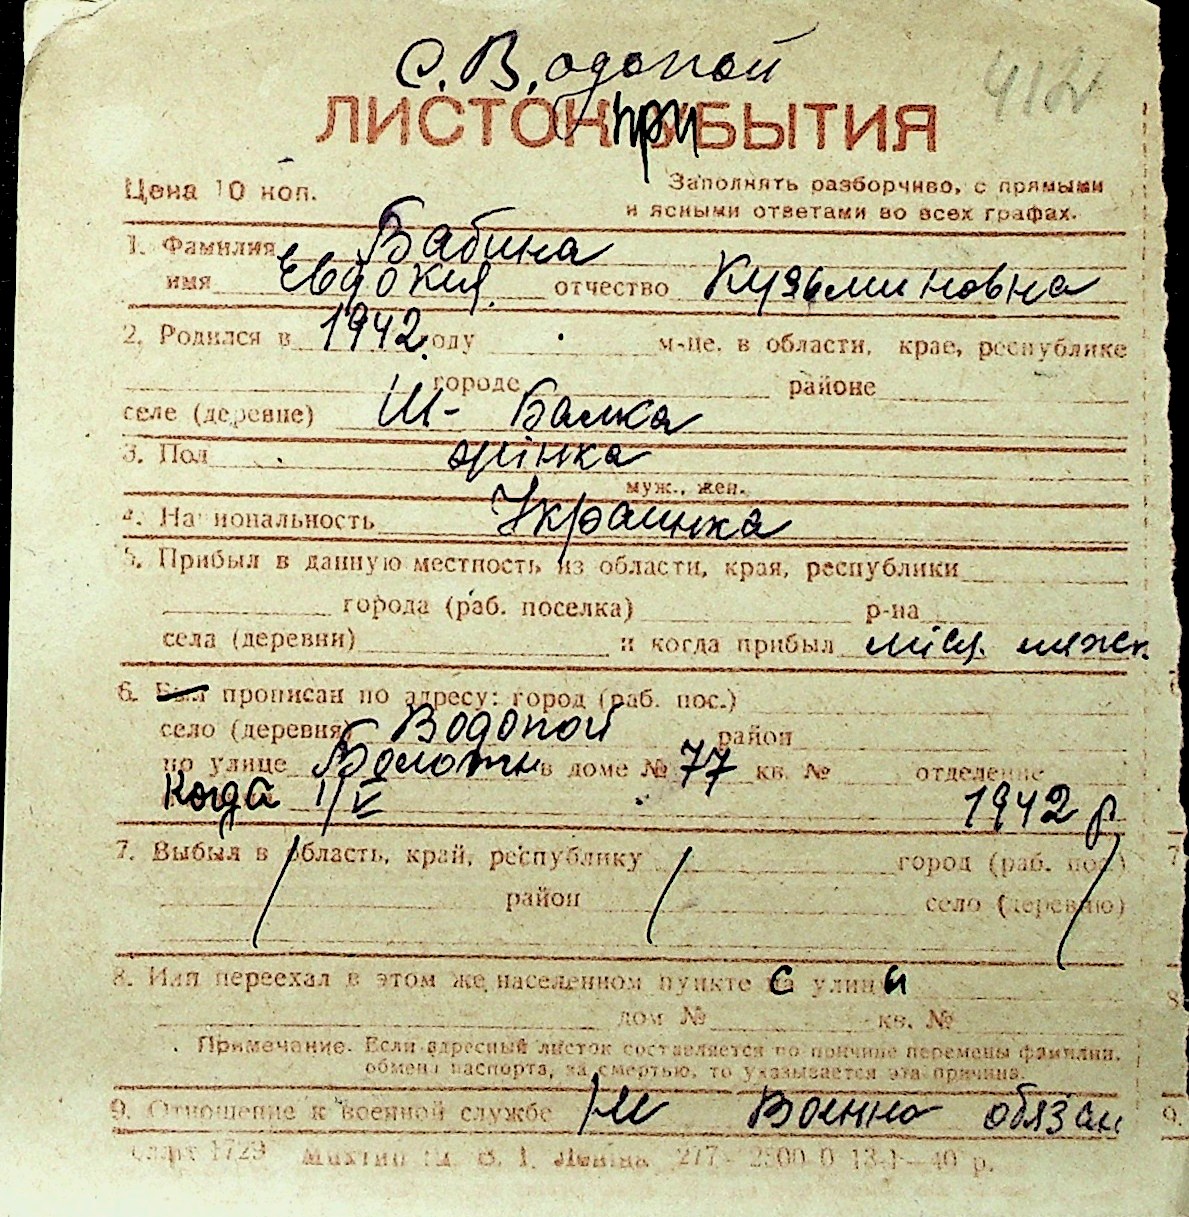 с. Водопой
412
ЛИСТОК ПРИБЫТИЯ
Цена 10 коп.
Заполнять разборчиво, с прямыми
и ясными ответами во всех графах.
1. Фамилия Бабина
имя Евдокия отчество Кузьминовна
2. Родился в 1942 году м-це, в области, крае, республике
городе районе
селе (деревне) Ш- Балка
3. Пол жінка
муж., жен.
4. Национальность Украинка
5. Прибыл в данную местность из области, края, республики
города (раб. поселка) р-на
села (деревни) и когда прибыл місц.
6. Был прописан по адресу: город (раб. пос.)
село (деревня) Водопой район
по улице Болотн в доме № 77 кв. № отделение
Когда 1/V 1942 р
7. Выбыл в область, край, республику город (раб. пос.)
район село (деревню)
8. Или переехал в этом же населенном пункте с улицы
дом № кв. №
Примечание. Если адресный листок составляется по причине перемены фамилии,
обмена паспорта, за смертью, то указывается эта причина.
9. Отношение к военной службе Не Военно обязан
1729 277-2500 0 13-1—40 р.